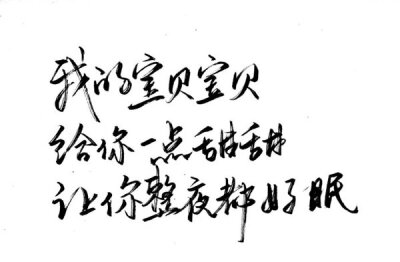 我的宝贝宝贝
给你一点甜甜
让你整夜都好眠